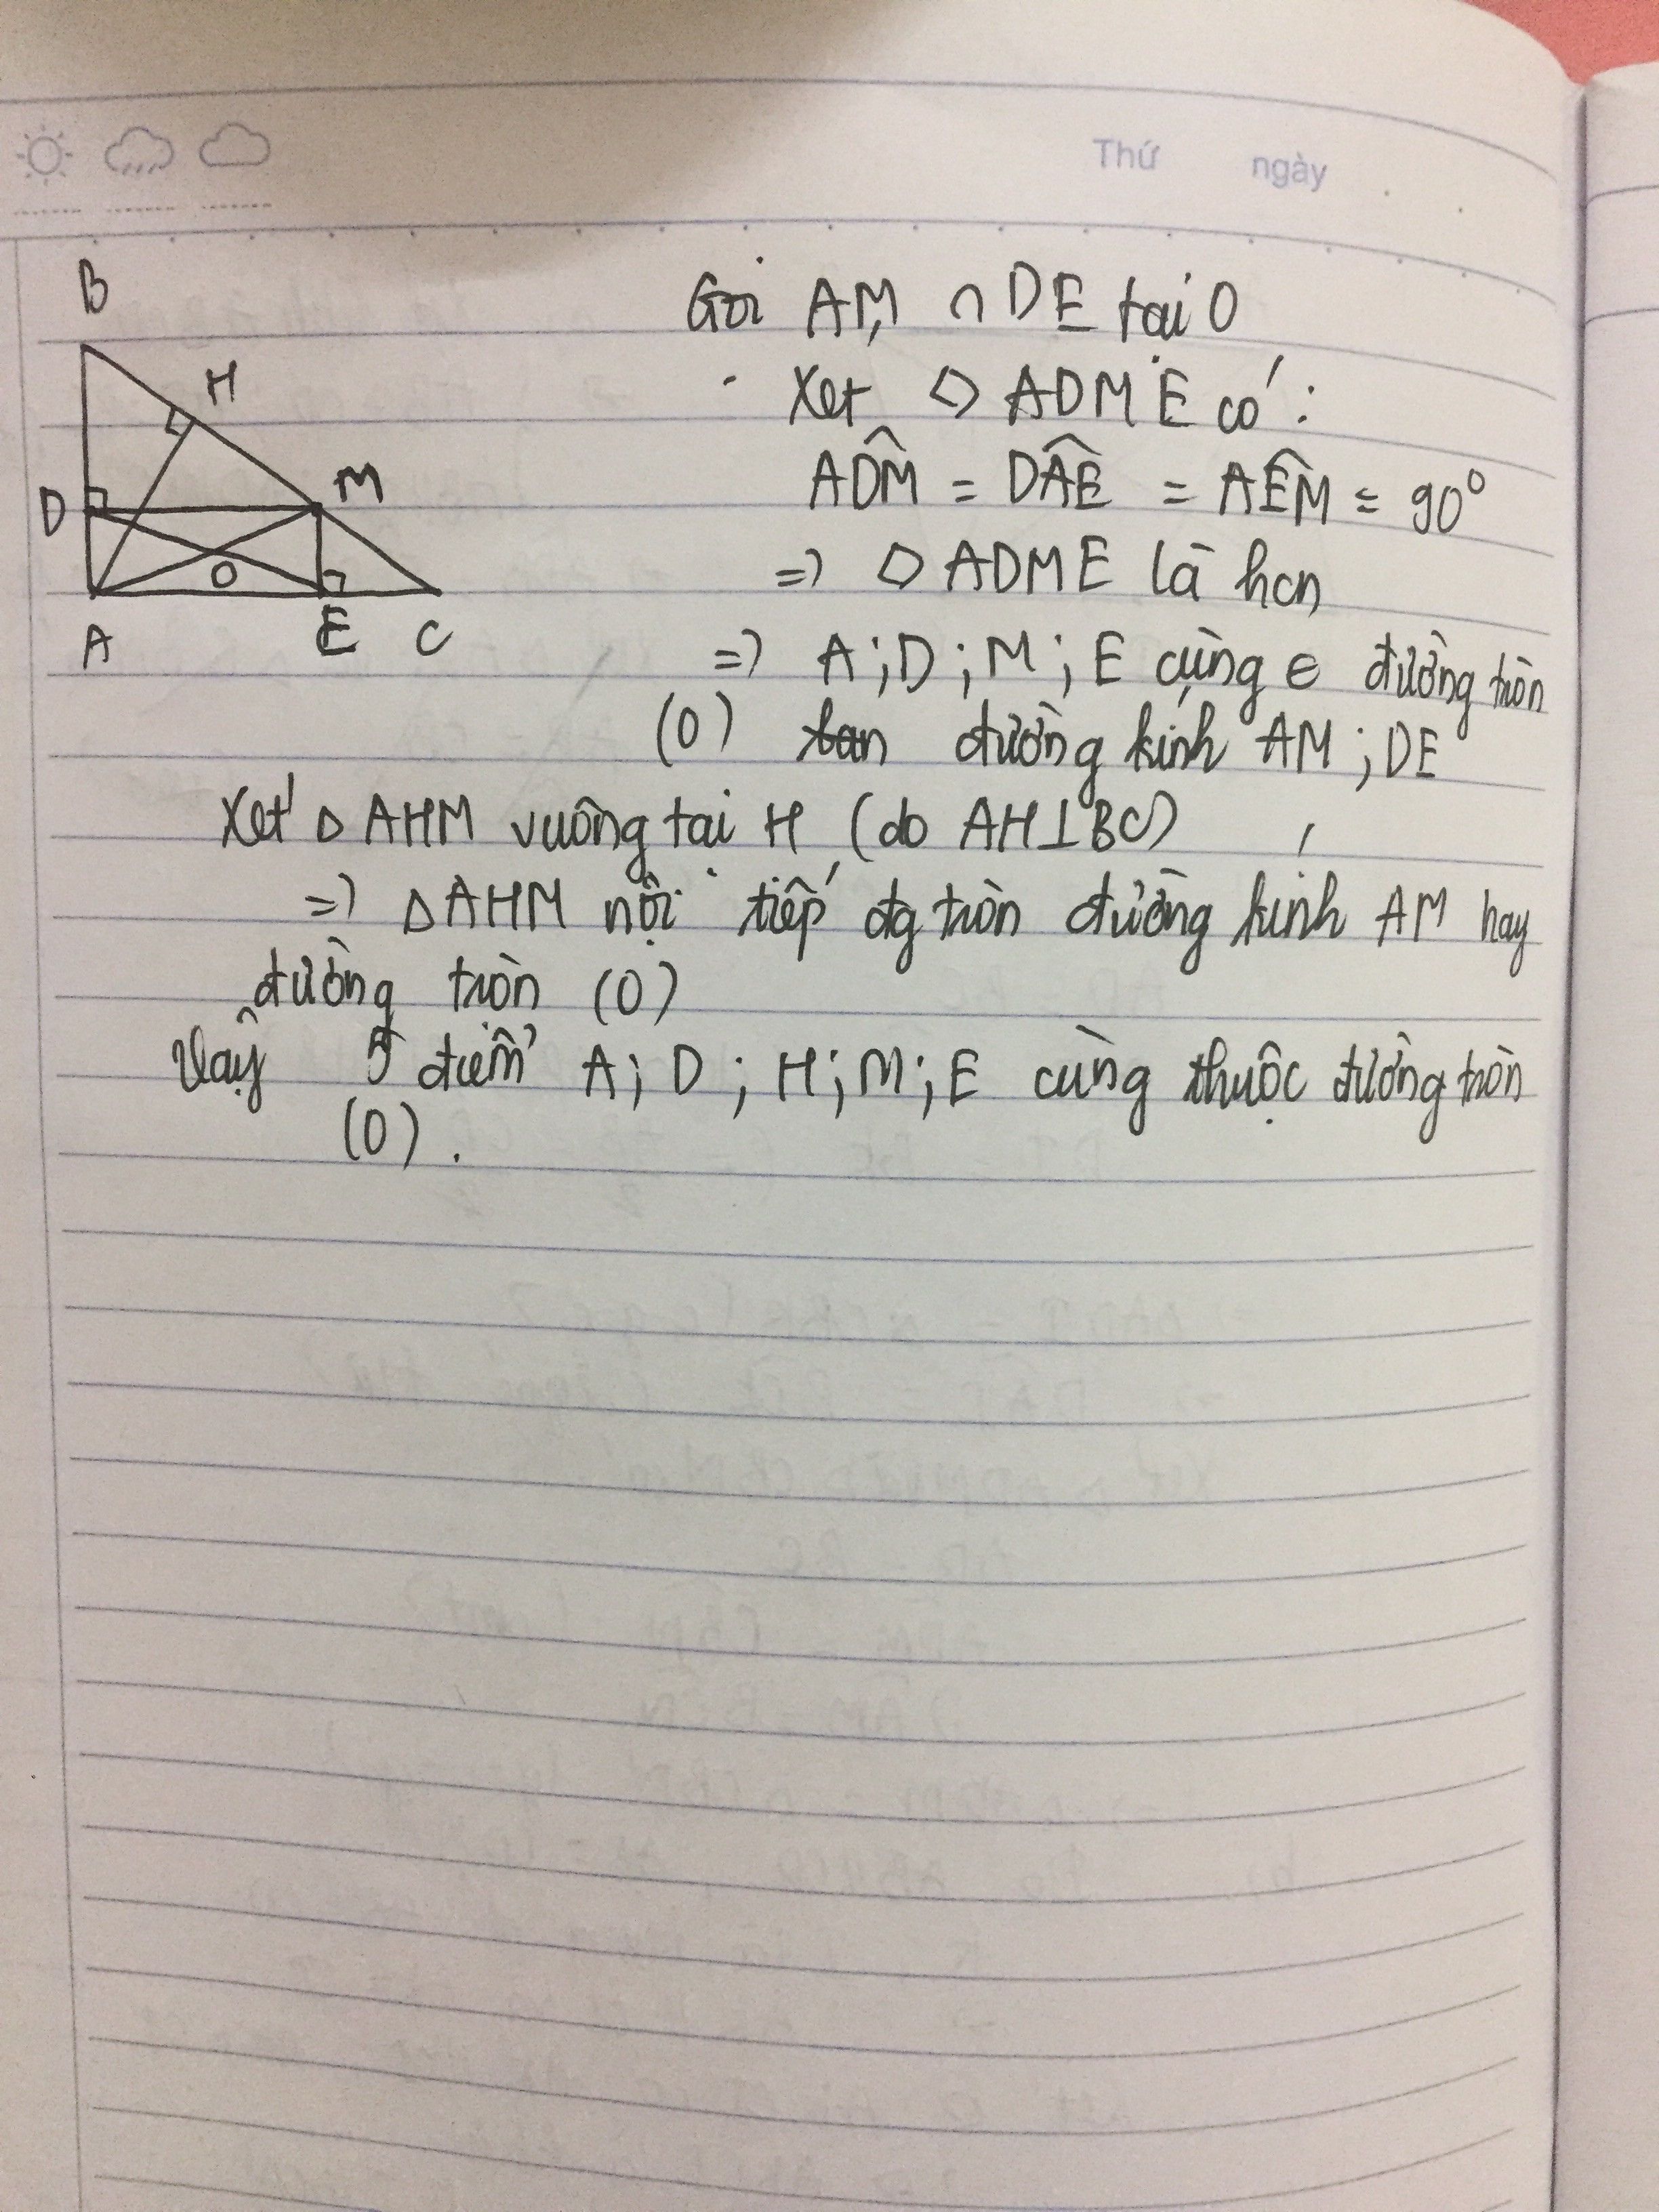 Thứ ngày
B
H
D
M
O
A
E
C
Gọi AM ∩ DE tại O
- Xét ◇ ADME có :
ADM̂ = DÂE = AÊM = 90°
=> ◇ ADME là hcn
=> A ; D ; M ; E cùng ∈ đường tròn
(O) đường kính AM ; DE
Xét △ AHM vuông tại H (do AH⊥BC)
=> △AHM nội tiếp đg tròn đường kính AM hay
đường tròn (O)
Vậy 5 điểm A ; D ; H ; M ; E cùng thuộc đường tròn
(O) .